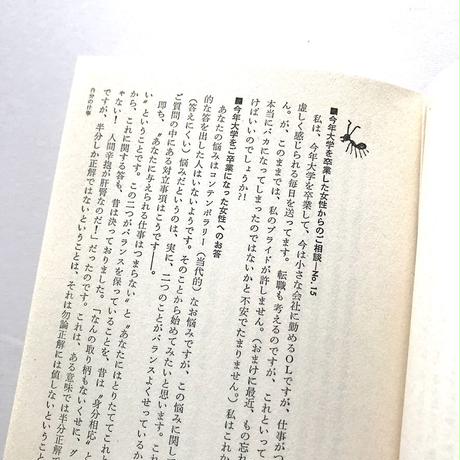 ■今年大学を卒業した女性からのご相談—No.15
私は、今年大学を卒業して、今は小さな会社に勤めるOLですが、仕事がつ
虚しく感じられる毎日を送ってます。転職も考えるのですが、これといって
ん。が、このままでは、私のプライドが許しません。（おまけに最近、もの忘れ
本当にバカになってしまったのではないかと不安でたまりません。）私はこれか
けばいいのでしょうか?!
■今年大学をご卒業になった女性へのお答
あなたの悩みはコンテンポラリー（当代的）なお悩みですが、この悩みに関して
的な答を出した人はいないようです。そのことから始めてみたいと思います。
（答えにくい）悩みだというのは、実に、二つのことがバランスよくせっているか
ご質問の中にある対立事項はこうです——。
即ち、〝あなたに与えられる仕事はつまらない〟と〝あなたにはとりたててこれと
い〟ということです。この二つがバランスを保っていることを、昔は〝身分相応〟と
から、これに関する答も、昔は決っておりました。「なんの取り柄もないくせに、グ
ゃない！　人間辛抱が肝腎なのだ！」だったのです。これは、ある意味では半分正解
ですが、半分しか正解ではないということは、それは勿論正解には値しないということ
自分の仕事